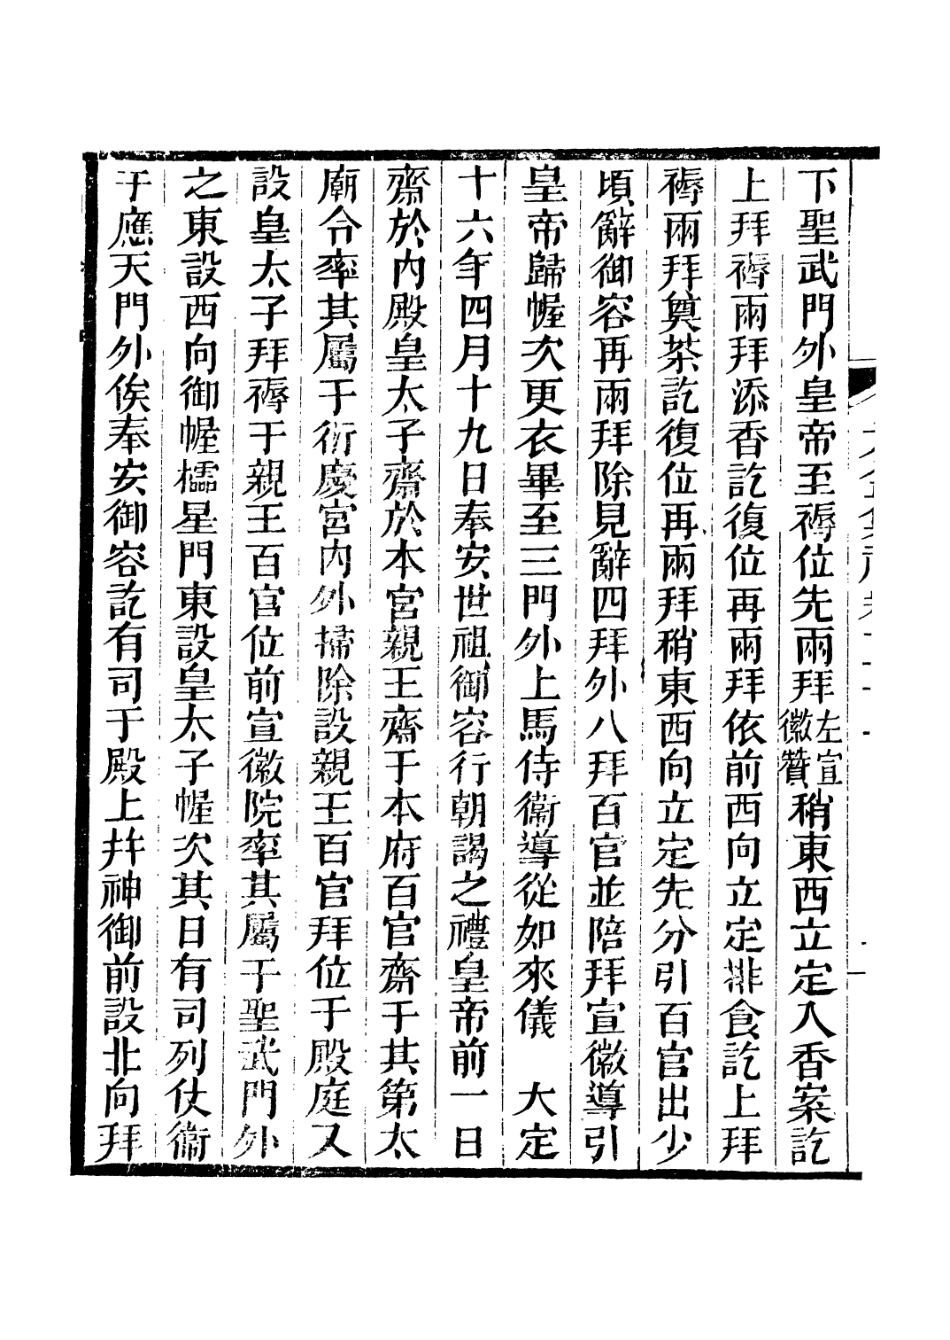 下聖武門外皇帝至褥位先兩拜左宣徽贊稍東西立定入香案訖
上拜褥兩拜添香訖復位再兩拜依前西向立定排食訖上拜
褥兩拜奠茶訖復位再兩拜稍東西向立定先分引百官出少
頃辭御容再兩拜除見辭四拜外八拜百官並陪拜宣徽導引
皇帝歸幄次更衣畢至三門外上馬侍衞導從如來儀　大定
十六年四月十九日奉安世祖御容行朝謁之禮皇帝前一日
齋於內殿皇太子齋於本宮親王齋于本府百官齋于其第太
廟令率其屬于衍慶宮內外掃除設親王百官拜位于殿庭又
設皇太子拜褥于親王百官位前宣徽院率其屬于聖武門外
之東設西向御幄櫺星門東設皇太子幄次其日有司列仗衞
于應天門外俟奉安御容訖有司于殿上幷神御前設北向拜